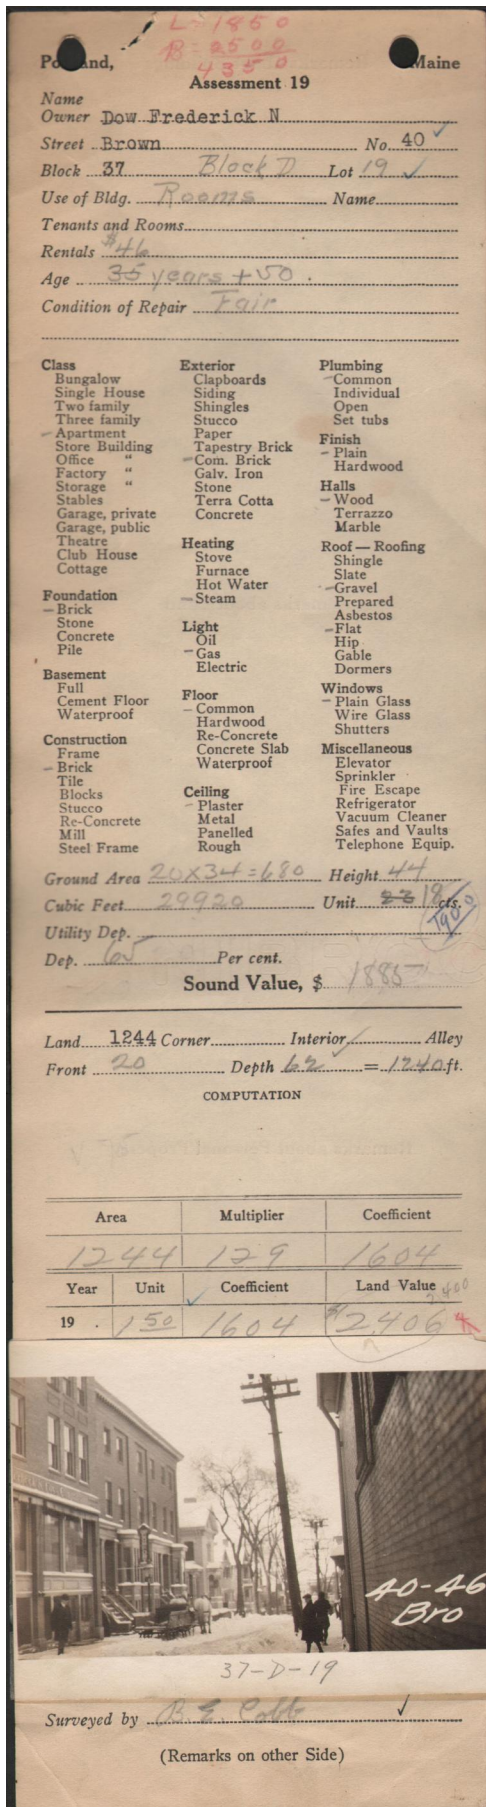 L = 1850
B = 2500
4350
Portland, Maine
Assessment 19
Name
Owner Dow Frederick N
Street Brown No. 40 ✓
Block 37 Block D Lot 19 ✓
Use of Bldg. Rooms Name
Tenants and Rooms
Rentals $46
Age 35 years + 50.
Condition of Repair Fair
Class
Bungalow
Single House
Two family
Three family
– Apartment
Store Building
Office "
Factory "
Storage "
Stables
Garage, private
Garage, public
Theatre
Club House
Cottage
Foundation
– Brick
Stone
Concrete
Pile
Basement
Full
Cement Floor
Waterproof
Construction
Frame
– Brick
Tile
Blocks
Stucco
Re-Concrete
Mill
Steel Frame
Exterior
Clapboards
Siding
Shingles
Stucco
Paper
Tapestry Brick
– Com. Brick
Galv. Iron
Stone
Terra Cotta
Concrete
Heating
Stove
Furnace
Hot Water
– Steam
Light
Oil
– Gas
Electric
Floor
– Common
Hardwood
Re-Concrete
Concrete Slab
Waterproof
Ceiling
– Plaster
Metal
Panelled
Rough
Plumbing
– Common
Individual
Open
Set tubs
Finish
– Plain
Hardwood
Halls
– Wood
Terrazzo
Marble
Roof — Roofing
Shingle
Slate
– Gravel
Prepared
Asbestos
– Flat
Hip
Gable
Dormers
Windows
– Plain Glass
Wire Glass
Shutters
Miscellaneous
Elevator
Sprinkler
Fire Escape
Refrigerator
Vacuum Cleaner
Safes and Vaults
Telephone Equip.
Ground Area 20 X 34 = 680 Height 44
Cubic Feet 29920 Unit 18 cts.
1900
Utility Dep.
Dep. 65 Per cent.
Sound Value, $ 1885
Land 1244 Corner Interior ✓ Alley
Front 20 Depth 62 = 1240 ft.
COMPUTATION
Area Multiplier Coefficient
1244 129 1604
Year Unit Coefficient Land Value
2400
19 . 1 50 1604 $2,406
40-46
Bro
37-D-19
Surveyed by B. E. Cobb ✓
(Remarks on other Side)